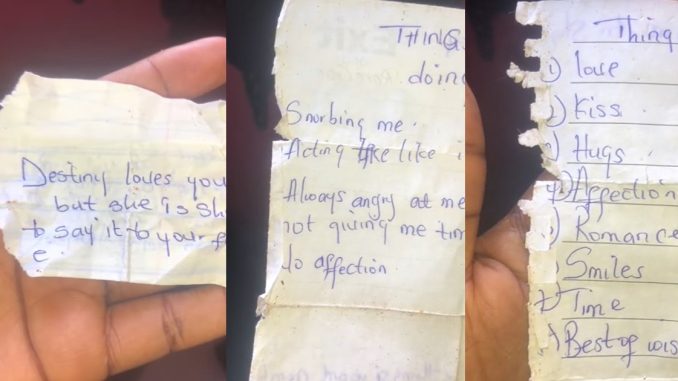 Destiny loves you
but she is sh
to say it to your f
e.
THING
doing
Snorbing me.
Acting like like i
Always angry at me
not giving me tim
No affection.
Thing
1) love
2) Kiss.
3) Hugs
4) Affection
5) Romance
6) Smiles
7) Time
8) Best of wis